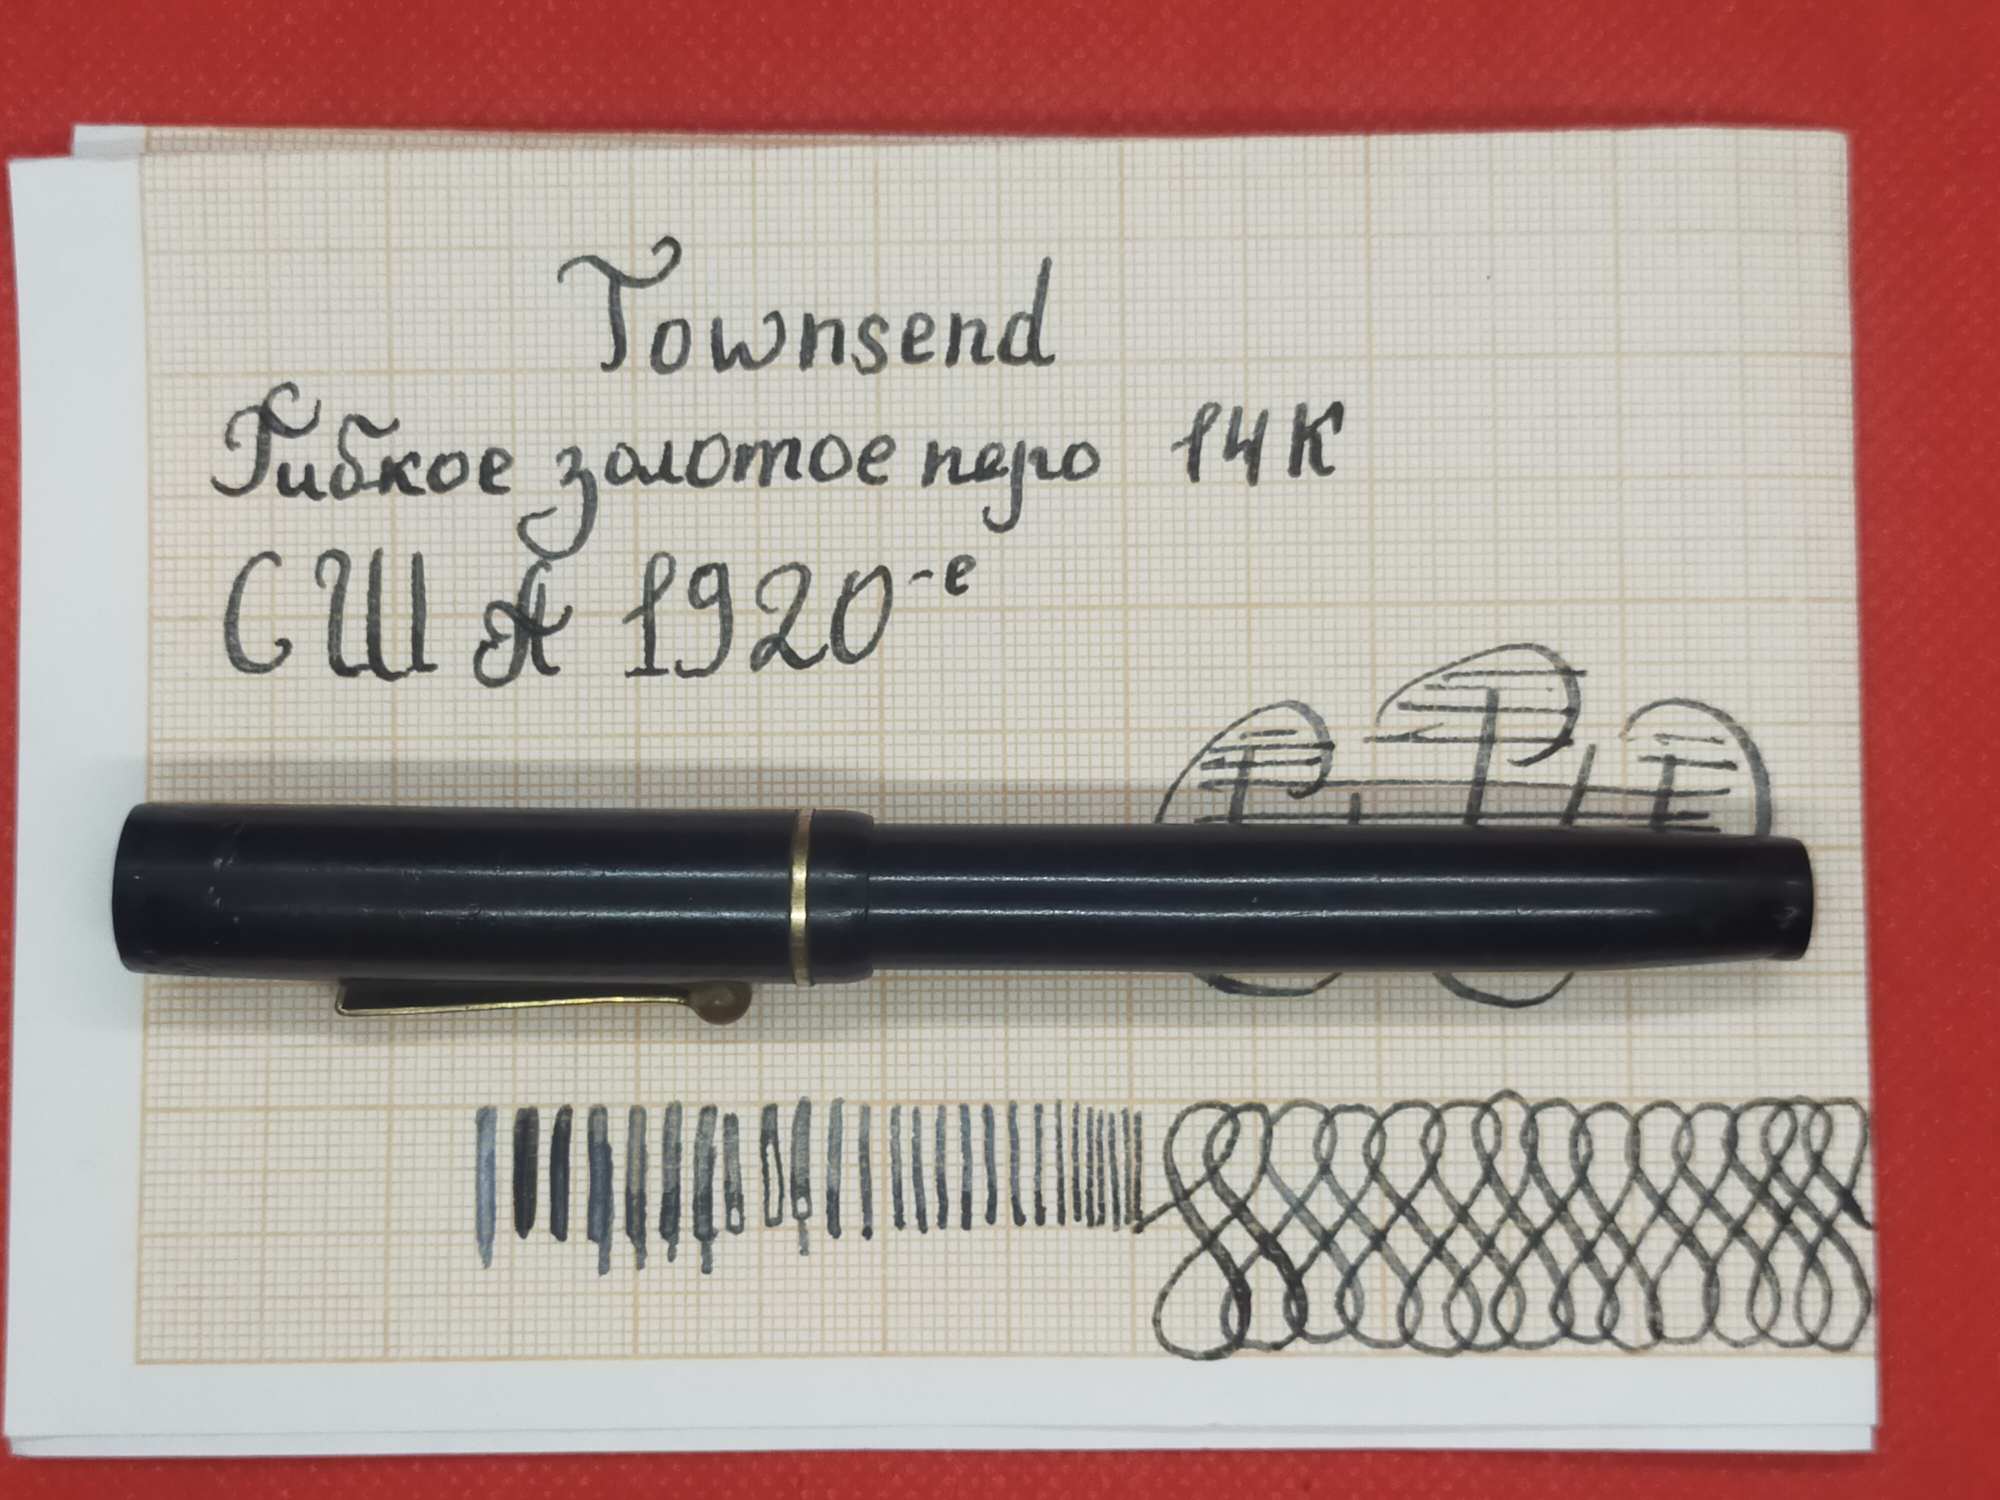 Townsend
Гибкое золотое перо 14К
США 1920-е